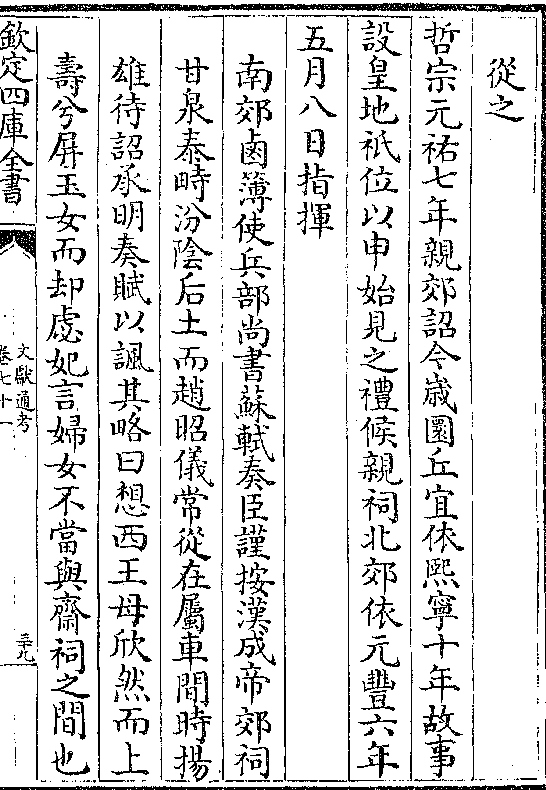 從之
哲宗元祐七年親郊詔今歲圜丘宜依熙寧十年故事
設皇地祇位以申始見之禮候親祠北郊依元豐六年
五月八日指揮
南郊鹵簿使兵部尚書蘇軾奏臣謹按漢成帝郊祠
甘泉泰畤汾陰后土而趙昭儀常從在屬車間時揚
雄待詔承明奏賦以諷其略曰想西王母欣然而上
壽兮屏玉女而却虙妃言婦女不當與齋祠之間也
欽定四庫全書
文獻通考
卷七十一
三十九